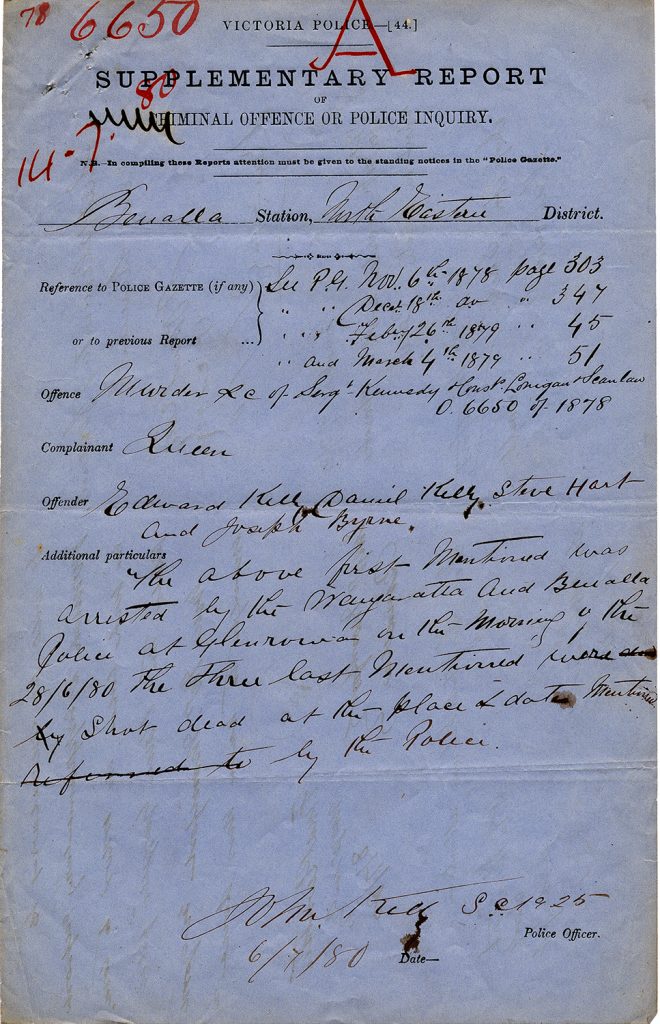 78
6650
A
VICTORIA POLICE—[44.]
SUPPLEMENTARY REPORT
OF
CRIMINAL OFFENCE OR POLICE INQUIRY.
14-7-80
N.B.—In compiling these Reports attention must be given to the standing notices in the "Police Gazette."
Benalla Station, North Eastern District.
Reference to POLICE GAZETTE (if any) See P.G. Nov. 6th 1878 page 303
" " Decr 18th do " 347
or to previous Report ... " " Feby 26th 1879 " 45
" and March 4th 1879 " 51
Offence Murder &c of Sergt Kennedy Consts Lonigan & Scanlan
O. 6650 of 1878
Complainant Queen
Offender Edward Kelly Daniel Kelly Steve Hart
and Joseph Byrne.
Additional particulars
The above first Mentioned was
arrested by the Wangaratta and Benalla
Police at Glenrowan on the Morning of the
28/6/80 The Three last Mentioned were
by Shot dead at the place & date Mentioned
referred to by the Police.
John Kelly S.C. 1925
Police Officer.
6/7/80 Date—